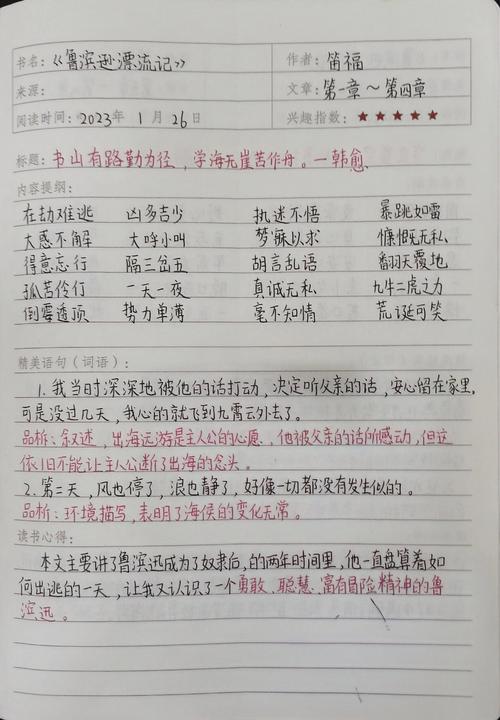 书名：《鲁滨逊漂流记》 作者：笛福
来源： 文章：第一章～第四章
阅读时间：2023年 1月 26日 兴趣指数：★★★★★
标题：书山有路勤为径，学海无崖苦作舟。一韩愈
内容提纲：
在劫难逃 凶多吉少 执迷不悟 暴跳如雷
大惑不解 大呼小叫 梦寐以求 慷慨无私
得意忘行 隔三岔五 胡言乱语 翻天覆地
孤苦伶仃 一天一夜 真诚无私 九牛二虎之力
倒霉透顶 势力单薄 毫不知情 荒诞可笑
精美语句（词语）：
1. 我当时深深地被他的话打动，决定听父亲的话，安心留在家里，
可是没过几天，我心的就飞到九霄云外去了。
品析：叙述，出海远游是主人公的心愿，他被父亲的话所感动，但这
依旧不能让主人公断了出海的念头。
2. 第二天，风也停了，浪也静了，好像一切都没有发生似的。
品析：环境描写，表明了海侯的变化无常。
读书心得：
本文主要讲了鲁滨迅成为了奴隶后，的两年时间里，他一直盘算着如
何出逃的一天，让我又认识了一个勇敢、聪慧、富有冒险精神的鲁
滨迅。